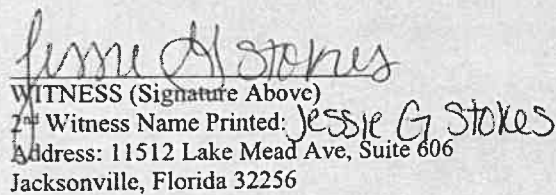 Jessie G Stokes
WITNESS (Signature Above)
2nd Witness Name Printed: Jessie G Stokes
Address: 11512 Lake Mead Ave, Suite 606
Jacksonville, Florida 32256